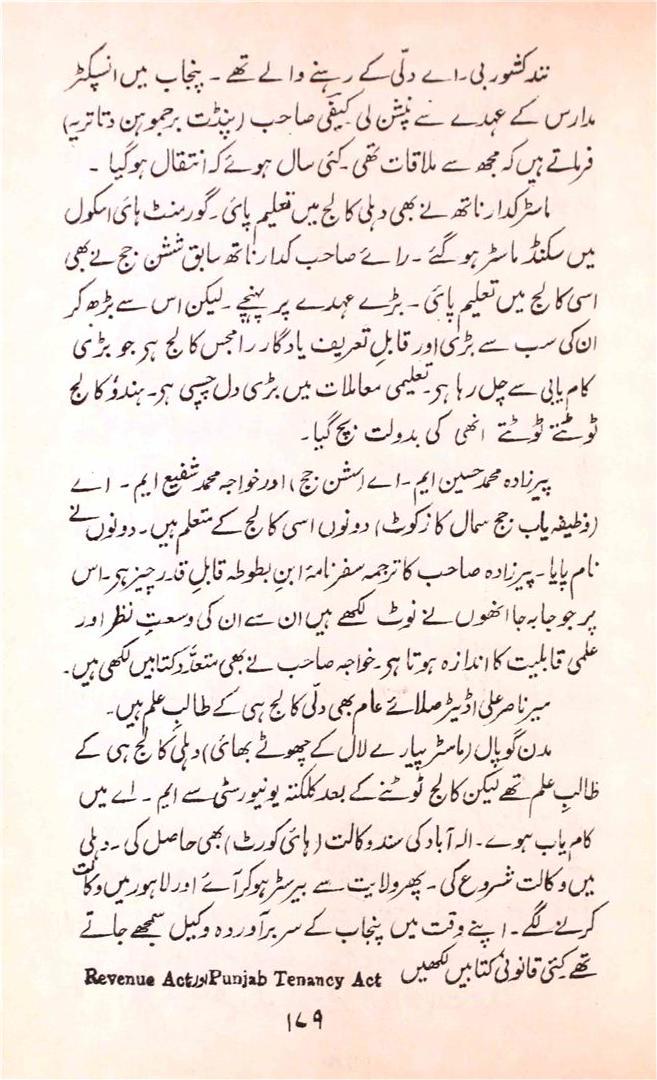 نند کشور بی۔ اے دلّی کے رہنے والے تھے۔ پنجاب میں انسپکٹر
مدارس کے عہدے سے پنشن لی کیفی صاحب (پنڈت برجموہن دتاتریہ)
فرماتے ہیں کہ مجھ سے ملاقات تھی۔ کئی سال ہوئے کہ انتقال ہوگیا۔
ماسٹر کدار ناتھ نے بھی دہلی کالج میں تعلیم پائی۔ گورمنٹ ہائی اسکول
میں سکنڈ ماسٹر ہو گئے۔ رائے صاحب کدار ناتھ سابق ششن جج نے بھی
اسی کالج میں تعلیم پائی۔ بڑے عہدے پر پہنچے۔ لیکن اس سے بڑھ کر
ان کی سب سے بڑی اور قابلِ تعریف یادگار رامجس کالج ہر جو بڑی
کام یابی سے چل رہا ہر۔ تعلیمی معاملات میں بڑی دل چسپی ہر۔ ہندؤ کالج
ٹوٹتے ٹوٹتے انھی کی بدولت بچ گیا۔
پیرزادہ محمد حسین ایم۔ اے (سشن جج) اور خواجہ محمد شفیع ایم۔ اے
(وظیفہ یاب جج سمال کاز کوٹ) دونوں اسی کالج کے متعلم ہیں۔ دونوں نے
نام پایا۔ پیرزادہ صاحب کا ترجمہ سفرنامۂ ابنِ بطوطہ قابلِ قدر چیز ہر۔ اس
پر جو جابہ جا انھوں نے نوٹ لکھے ہیں ان سے ان کی وسعتِ نظر اور
علمی قابلیت کا اندازہ ہوتا ہر۔ خواجہ صاحب نے بھی متعدّد کتابیں لکھی ہیں۔
میر ناصر علی اڈیٹر صلائے عام بھی دلّی کالج ہی کے طالبِ علم ہیں۔
مدن گوپال (ماسٹر پیارے لال کے چھوٹے بھائی) دہلی کالج ہی کے
طالبِ علم تھے لیکن کالج ٹوٹنے کے بعد کلکتہ یونیورسٹی سے ایم۔ اے میں
کام یاب ہوے۔ الہ آباد کی سند وکالت (ہائی کورٹ) بھی حاصل کی۔ دہلی
میں وکالت شروع کی۔ پھر ولایت سے بیرسٹر ہوکر آئے اور لاہور میں وکالت
کرنے لگے۔ اپنے وقت میں پنجاب کے سربرآوردہ وکیل سمجھے جاتے
تھے کئی قانونی کتابیں لکھیں Punjab Tenancy Act اور Revenue Act
۱۷۹